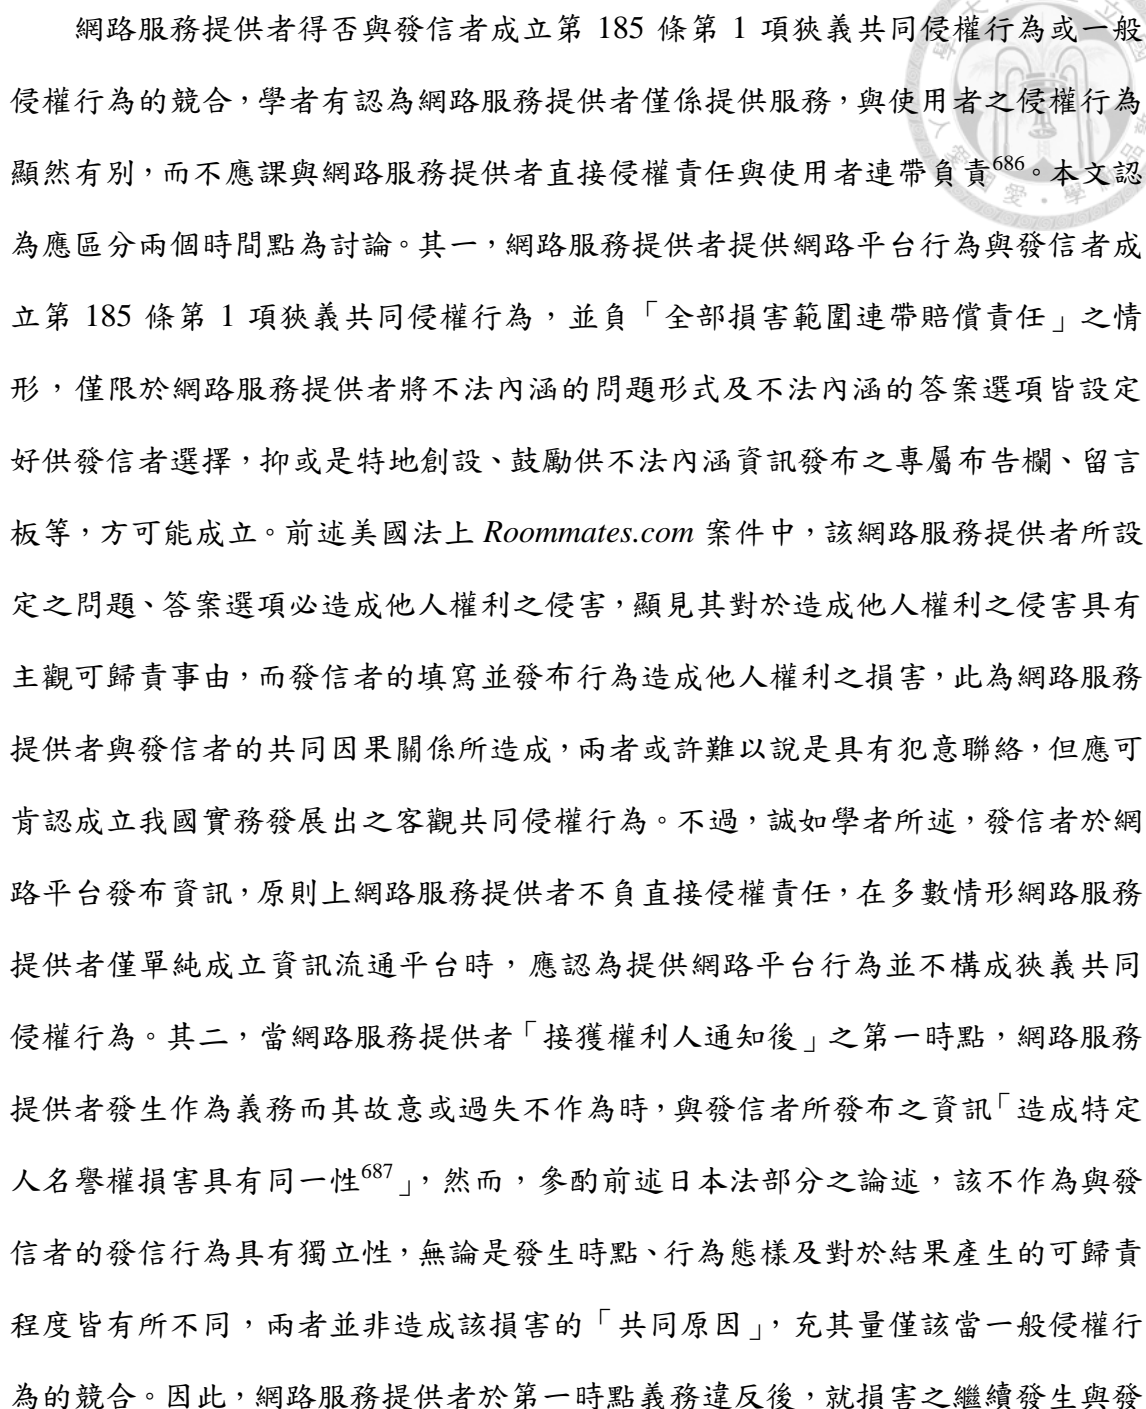 網路服務提供者得否與發信者成立第 185 條第 1 項狹義共同侵權行為或一般
侵權行為的競合，學者有認為網路服務提供者僅係提供服務，與使用者之侵權行為
顯然有別，而不應課與網路服務提供者直接侵權責任與使用者連帶負責686。本文認
為應區分兩個時間點為討論。其一，網路服務提供者提供網路平台行為與發信者成
立第 185 條第 1 項狹義共同侵權行為，並負「全部損害範圍連帶賠償責任」之情
形，僅限於網路服務提供者將不法內涵的問題形式及不法內涵的答案選項皆設定
好供發信者選擇，抑或是特地創設、鼓勵供不法內涵資訊發布之專屬布告欄、留言
板等，方可能成立。前述美國法上 Roommates.com 案件中，該網路服務提供者所設
定之問題、答案選項必造成他人權利之侵害，顯見其對於造成他人權利之侵害具有
主觀可歸責事由，而發信者的填寫並發布行為造成他人權利之損害，此為網路服務
提供者與發信者的共同因果關係所造成，兩者或許難以說是具有犯意聯絡，但應可
肯認成立我國實務發展出之客觀共同侵權行為。不過，誠如學者所述，發信者於網
路平台發布資訊，原則上網路服務提供者不負直接侵權責任，在多數情形網路服務
提供者僅單純成立資訊流通平台時，應認為提供網路平台行為並不構成狹義共同
侵權行為。其二，當網路服務提供者「接獲權利人通知後」之第一時點，網路服務
提供者發生作為義務而其故意或過失不作為時，與發信者所發布之資訊「造成特定
人名譽權損害具有同一性687」，然而，參酌前述日本法部分之論述，該不作為與發
信者的發信行為具有獨立性，無論是發生時點、行為態樣及對於結果產生的可歸責
程度皆有所不同，兩者並非造成該損害的「共同原因」，充其量僅該當一般侵權行
為的競合。因此，網路服務提供者於第一時點義務違反後，就損害之繼續發生與發